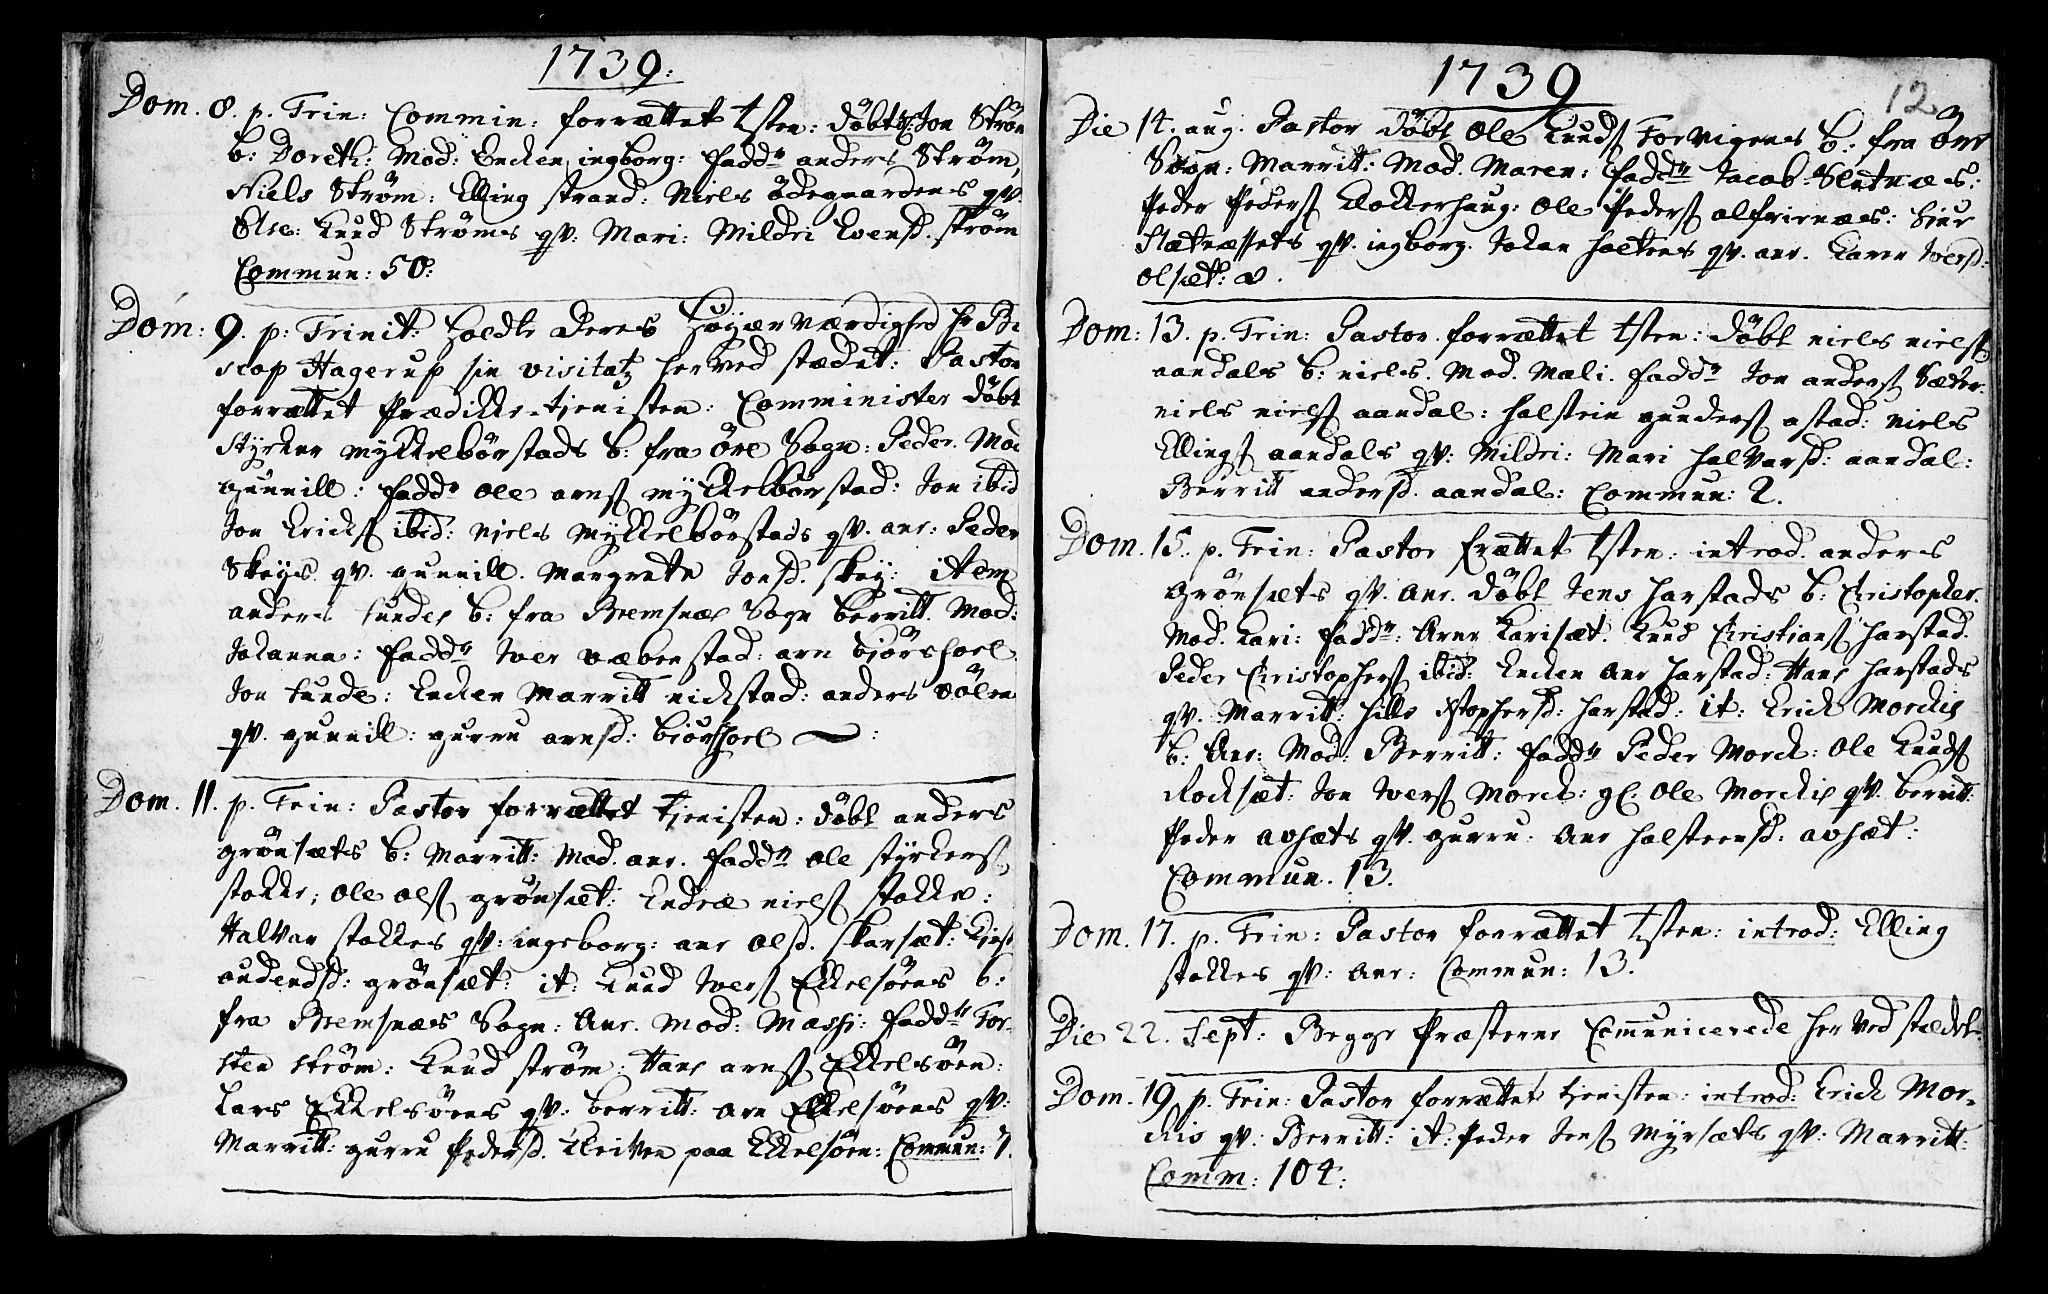 1739:
Dom. 8. p. Trin: Commin: forrættet tsten: døbt Jon Strøm
b: Doreth: Mod: Encken ingborg: Fadd: anders Strøm,
Niels Strøm: Elling strand: Niels ødegaardens qv.
Else: Knud Strøms qv: Mari: Mildri Evensd. strøm
Commun: 50:
Dom: 9. p: Trinit: Holdte Deres Høyærværdighed Hr Bi
scop Hagerup sin visitatz her ved stædet: Pastor
forrættet Prædikke-tjenisten: Comminister døbt
Styrker Myklebørstads b: fra Øre Sogn: Peder. Mod
gunnill: Fadd: Ole arns Myklebørstad: Jon ibid
Jon Ericks ibid: Niels Mykkelbørstads qv. anr: Peder
Skeys qv. gunnill. Margrete Jonsd. skey: item
anders tundes b: fra Bremsnæs Sogn berritt. Mod:
Johanna: Fadd: Iver væbenstad: arn biørshoel
Jon tunde: Encken Marritt nickstad: anders vølen
qv. gunnil: gurru arnsd: biørshoel:
Dom. 11. p. Trin: Pastor forrættet tjenisten: døbt anders
grønsæts b: Marritt: Mod. anr. Fadd: Ole styrkers
stokke; Ole Ols grønsæt: Endre niels stokke:
Halvar stokkes qv: ingeborg: anr Olsd. skarsæt:
audensd: grønsæt: it: Knud Ivers Ekkelsøens b:
fra Bremsnæs Sogn: Anr. Mod: Massi: Fadd: Tor-
sten strøm: Knud strøm: Hans arns Ekkelsøen:
Lars Ekkelsøens qv: berritt: arn Ekkelsøens qv:
Marritt: gurru Pedersd. Kleiven paa Ekkelsøen: Commun: 7.
1739
12
Die 14. aug. Pastor døbt Ole Knuds Torvigens b: fra Øre
Sogn: Marritt: Mod. Maren: Fadd: Jacob Slatnæs:
Peder Peders Klokkerhaug: Ole Peders alfriernæs: Siur
Slatnæssets qv. ingborg. Johan holtens qv. anr. Karen Iversd:
Olsæt:
Dom: 13. p. Trin: Pastor forrættet tsten: døbt niels niels
aandals b: niels. Mod. Mali. Fadd: Jon anders Sæter.
niels niels aandal: halstein gunders astad: niels
Ellings aandals qv: Mildri: Mari halvarsd: aandal:
Berritt andersd. aandal: Commun: 2.
Dom. 15. p. Trin: Pastor frættet tsten: introd. anders
grønsæts qv. anr. døbt Jens harstads b: Christopher.
Mod. Kari: Fadd: Arne Karisæt. Knud Christians harstad.
Peder Christophers ibid: Encken Anr harstad: Hans harstads
qv. Marritt: hille Xstophersd: harstad: it: Erick Morckis
b: Anr: Mod: Berritt: Fadd: Peder Morck: Ole Knuds
Rocksæt: Jon Ivers Morck: gl. Ole Morckis qv. berritt:
Peder avsæts qv. gurru: Anr halsteensd: avsæt:
Commun. 13.
Dom. 17. p. Trin: Pastor forrættet tsten: introd: Elling
stokkes qv: anr: Commun: 13.
Die 22. Sept: Begge Præsterne Communicerede her ved stædet.
Dom. 19. p. Trin: Pastor forrættet tjenisten: introd: Erick Mor-
ckis qv: Berritt: it: Peder Jens Myrsæts qv: Marritt:
Comm: 104: